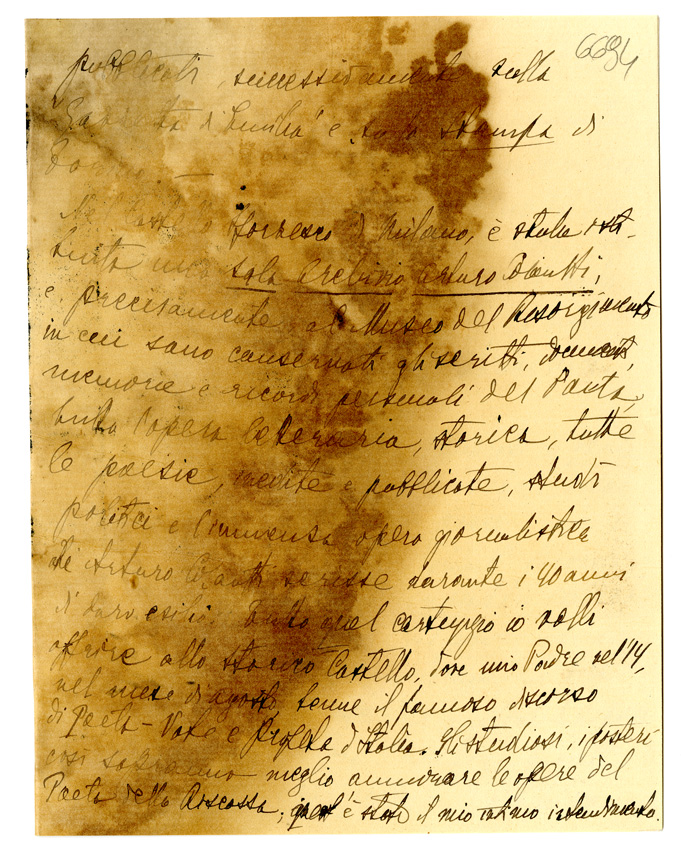 6694
pubblicati successivamente sulla
"Gazzetta d'Emilia" e sulla stampa di
Nel Castello Sforzesco di Milano, è stata isti-
tuita una sala Archivio Arturo
e precisamente al Museo del Risorgimento
in cui sono conservati gli scritti, documenti,
memorie e ricordi personali del Poeta,
tutta l'opera letteraria, storica, tutte
le poesie, inedite e pubblicate, studi
politici e l'immensa opera giornalistica
Arturo scrisse durante i 40 anni
di duro esilio. Tutto quel carteggio io volli
offrire allo storico Castello, dove mio Padre nel '14,
nel mese di agosto, tenne il famoso discorso
di Poeta-Vate e Profeta d'Italia. Gli studiosi, i posteri
così sapranno meglio ammirare le opere del
Poeta della Riscossa, quest'è stato il mio intimo intendimento.